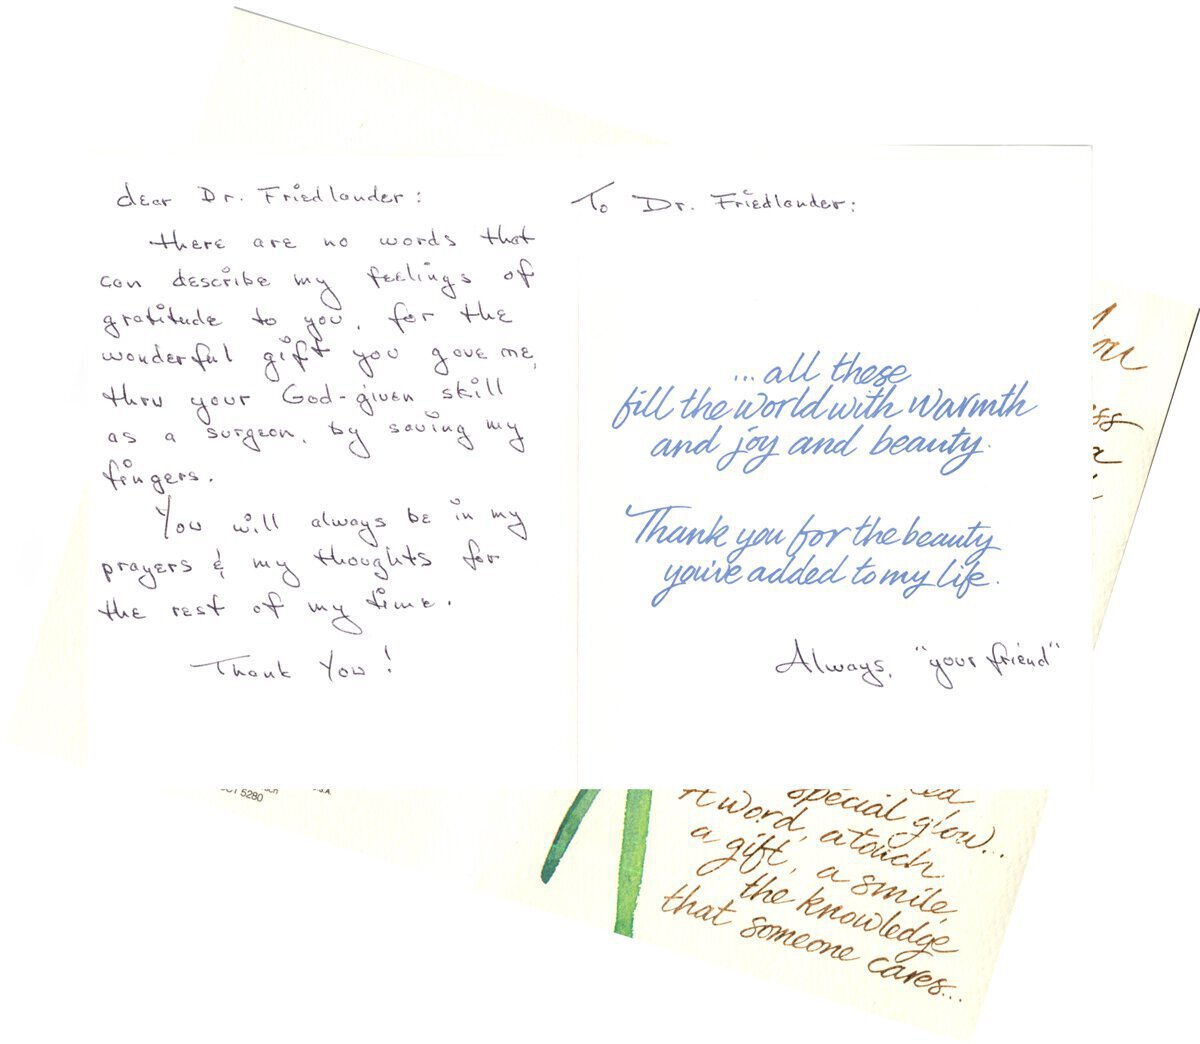 dear Dr. Friedlander:
there are no words that
can describe my feelings of
gratitude to you, for the
wonderful gift you gave me,
thru your God-given skill
as a surgeon, by saving my
fingers.
You will always be in my
prayers & my thoughts for
the rest of my time.
Thank You!
To Dr. Friedlander:
...all these
fill the world with warmth
and joy and beauty.
Thank you for the beauty
you've added to my life.
Always, "your friend"
5280
special glow...
A word, a touch,
a gift, a smile,
the knowledge
that someone cares...